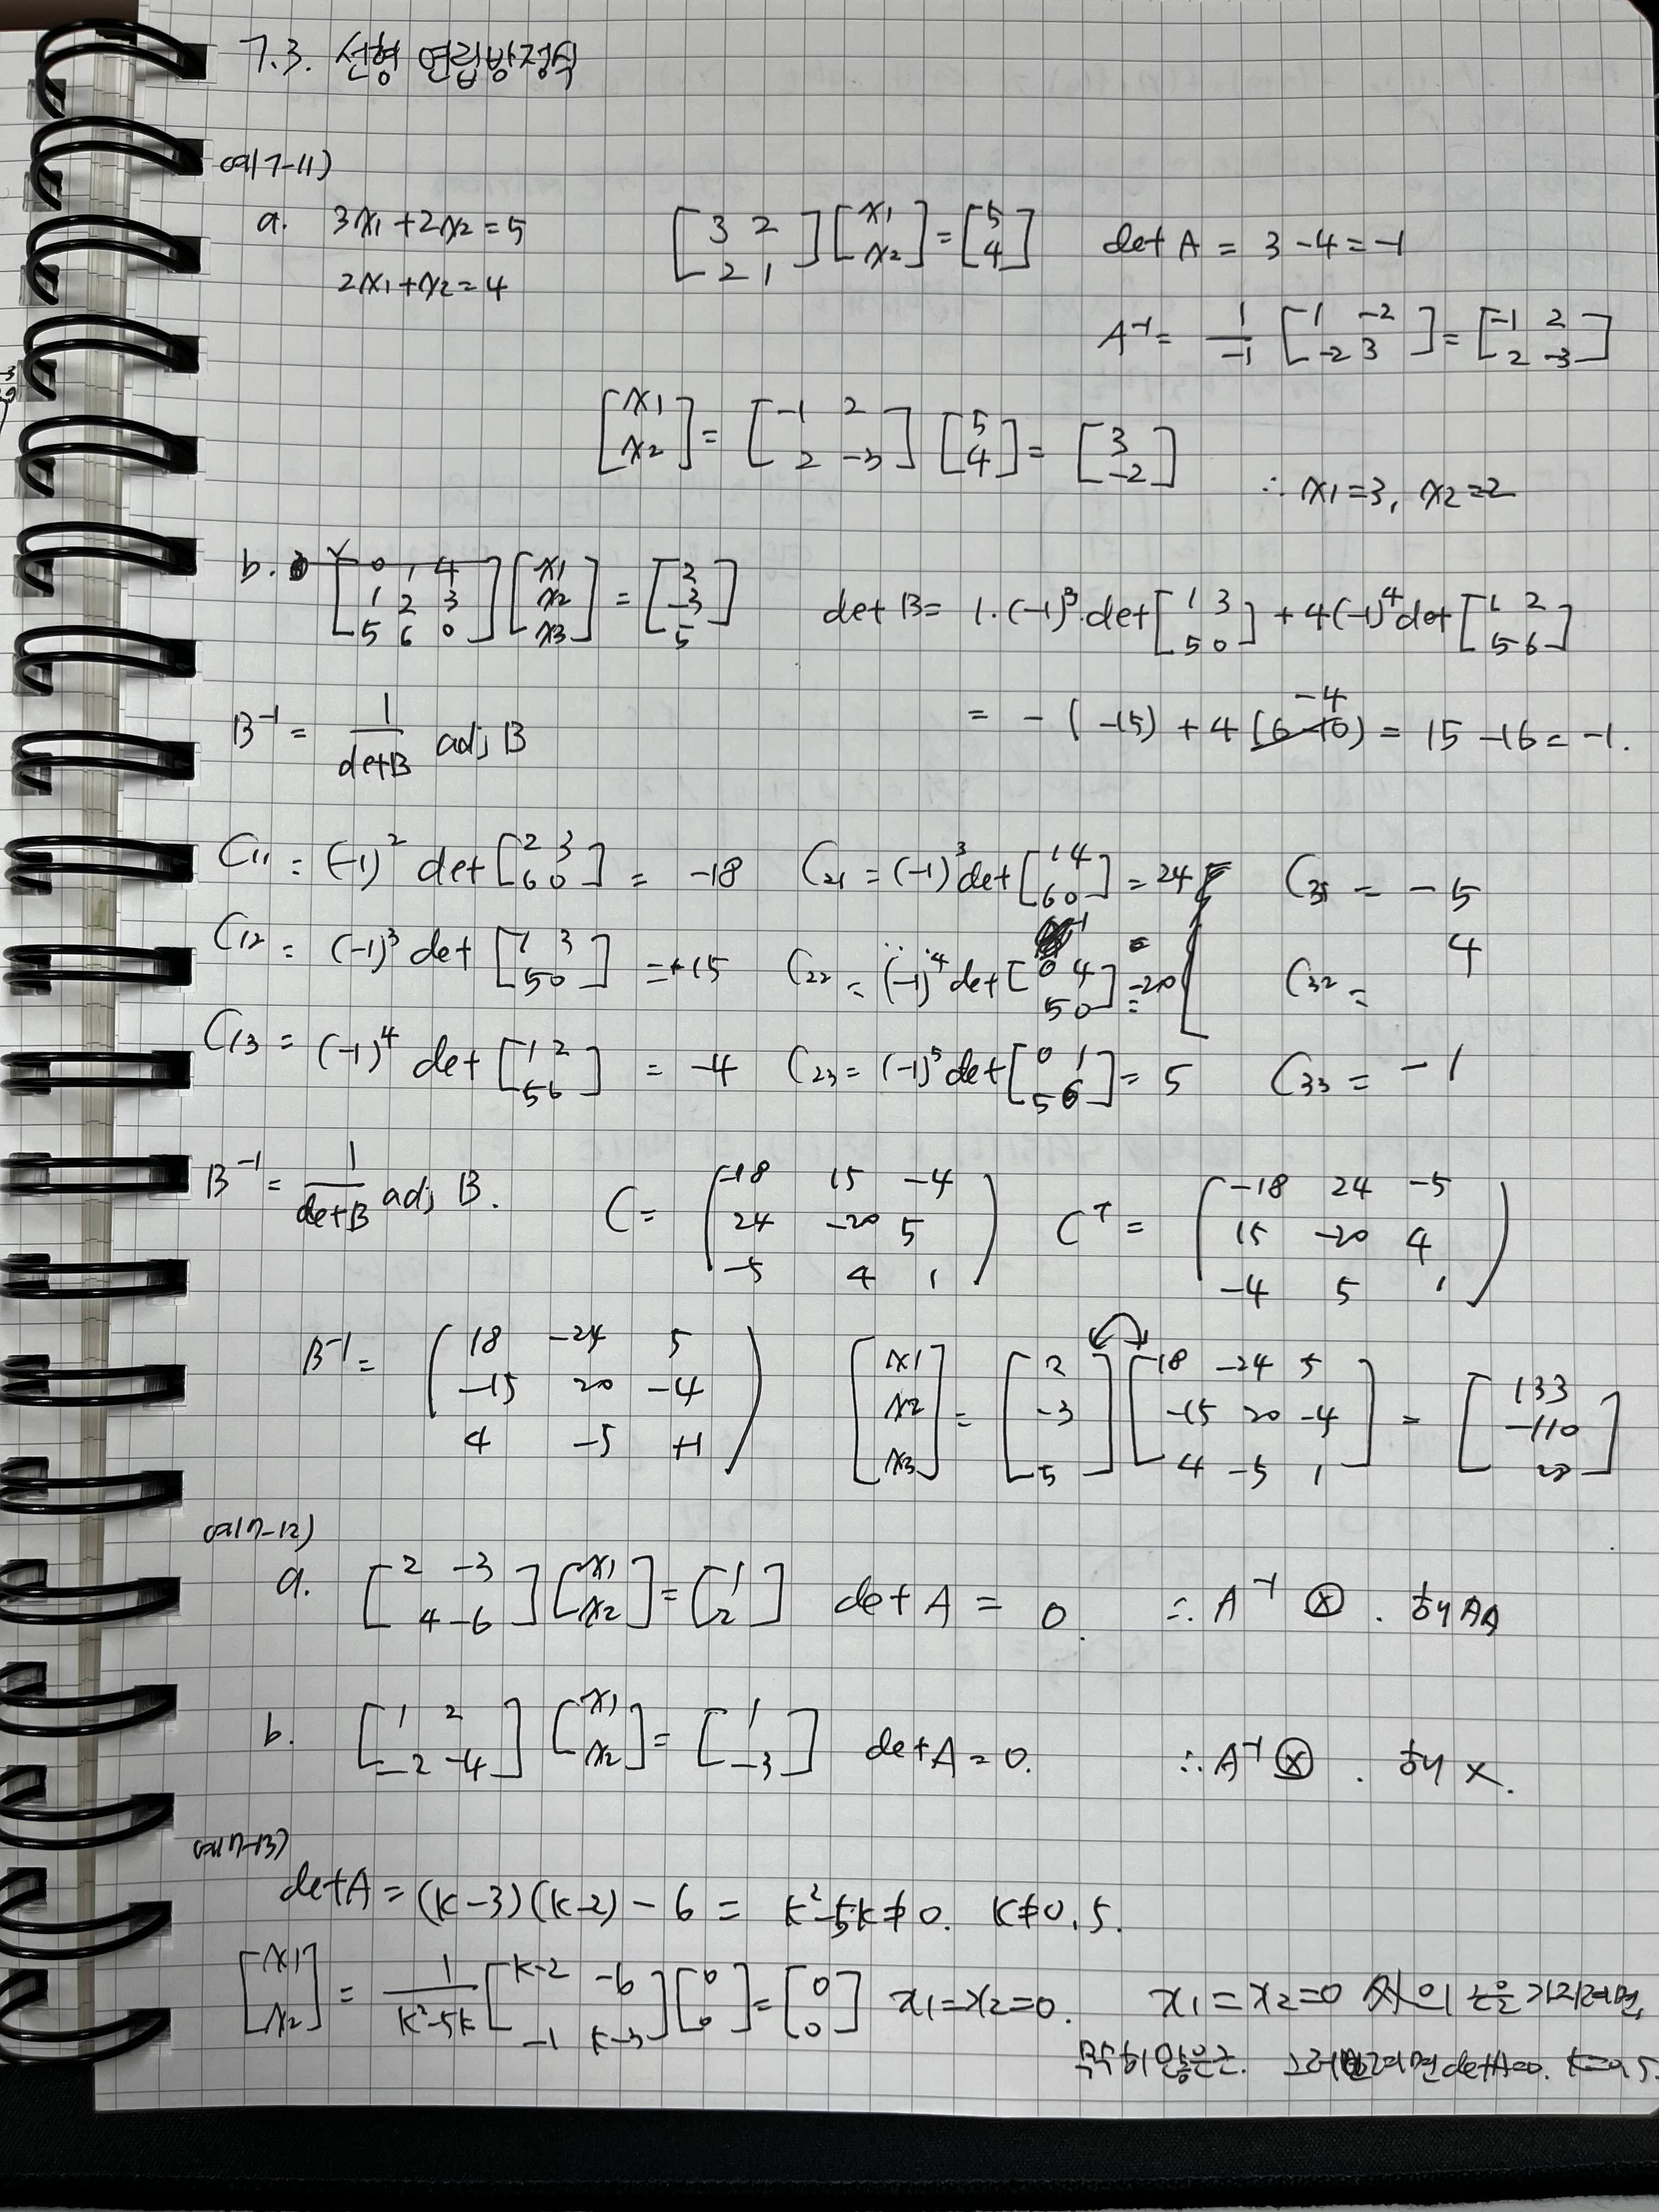 7.3. 선형 연립방정식
예(7-11)
a. 3x1+2x2=5 [3 2; 2 1][x1; x2]=[5; 4] det A = 3-4=-1
2x1+x2=4
A^-1= 1/-1 [1 -2; -2 3]=[-1 2; 2 -3]
[x1; x2]=[-1 2; 2 -3][5; 4]=[3; -2] ∴ x1=3, x2=-2
b. [0 1 4; 1 2 3; 5 6 0][x1; x2; x3]=[2; -3; 5] det B= 1·(-1)^3·det[1 3; 5 0]+4(-1)^4det[1 2; 5 6]
= -(-15)+4(6-10)=15-16=-1.
-4
B^-1= 1/detB adj B
C11=(-1)^2 det[2 3; 6 0]= -18 C21=(-1)^3det[1 4; 6 0]=24 C31= -5
C12=(-1)^3 det[1 3; 5 0]=+15 C22=(-1)^4det[0 4; 5 0]=-20 C32= 4
C13=(-1)^4 det[1 2; 5 6]= -4 C23=(-1)^5det[0 1; 5 6]=5 C33= -1
B^-1= 1/detB adj B. C=(-18 15 -4; 24 -20 5; -5 4 1) C^T=(-18 24 -5; 15 -20 4; -4 5 1)
B^-1=(18 -24 5; -15 20 -4; 4 -5 +1) [x1; x2; x3]=[2; -3; 5][18 -24 5; -15 20 -4; 4 -5 1]=[133; -110; 28]
예(7-12)
a. [2 -3; 4 -6][x1; x2]=[1; 2] det A = 0. ∴ A^-1 ⓧ.
b. [1 2; -2 -4][x1; x2]=[1; -3] det A=0. ∴ A^-1 ⓧ. 해 x.
예(7-13)
det A=(k-3)(k-2)-6= k^2-5k≠0. k≠0, 5.
[x1; x2]= 1/k^2-5k [k-2 -6; -1 k-3][0; 0]=[0; 0] x1=x2=0. x1=x2=0 외의 근을 가지려면,
무수히 많은근. 그러려면 detA=0. k=0, 5.